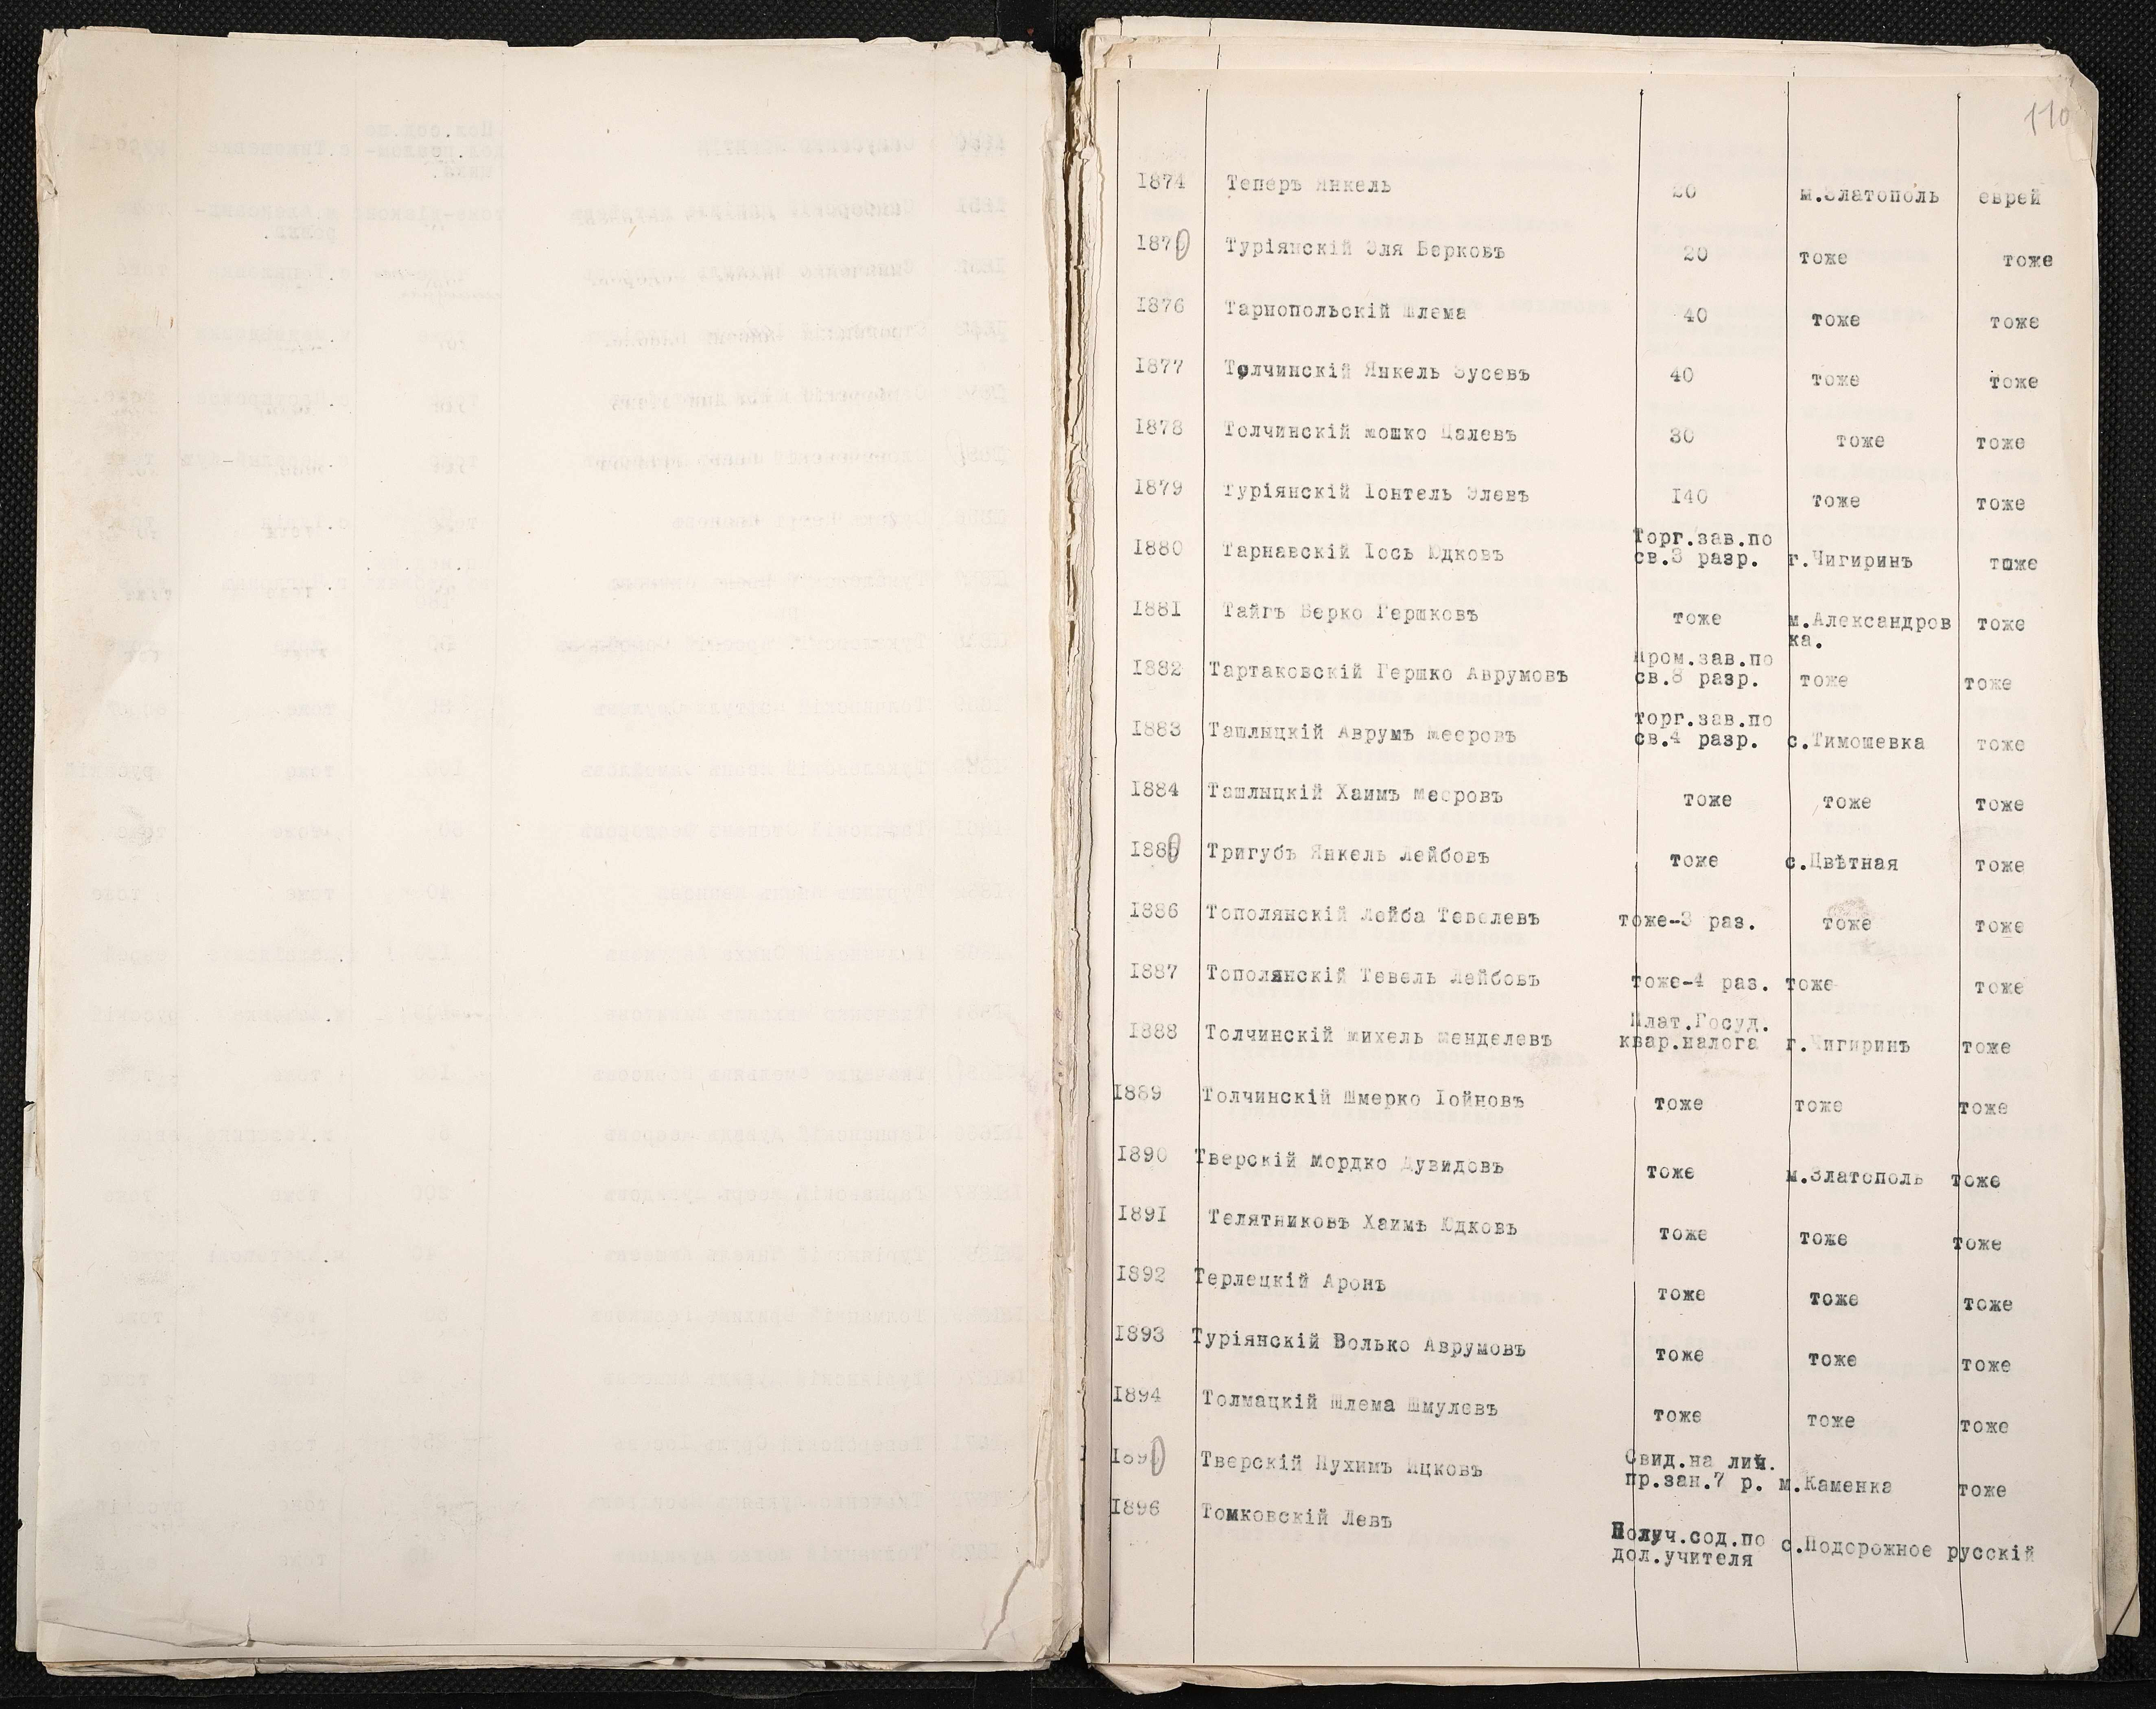 110
1874 Теперъ Янкель 20 м.Златополь еврей
1875 Туріянскій Эля Берковъ 20 тоже тоже
1876 Тарнопольскій Шлема 40 тоже тоже
1877 Толчинскій Янкель Зусевъ 40 тоже тоже
1878 Толчинскій Мошко Цалевъ 30 тоже тоже
1879 Туріянскій Іонтель Элевъ 140 тоже тоже
Торг.зав.по
1880 Тарнавскій Іось Юдковъ св.3 разр. г.Чигиринъ тоже
1881 Тайгъ Берко Гершковъ тоже м.Александров тоже
ка.
Пром.зав.по
1882 Тартаковскій Гершко Аврумовъ св.8 разр. тоже тоже
торг.зав.по
1883 Ташлыцкій Аврумъ Мееровъ св.4 разр. с.Тимошевка тоже
1884 Ташлыцкій Хаимъ Мееровъ тоже тоже тоже
1885 Тригубъ Янкель Лейбовъ тоже с.Цвѣтная тоже
1886 Тополянскій Лейба Тевелевъ тоже-3 раз. тоже тоже
1887 Тополянскій Тевель Лейбовъ тоже-4 раз. тоже тоже
Плат.Госуд.
1888 Толчинскій Михель Менделевъ квар.налога г.Чигиринъ тоже
1889 Толчинскій Шмерко Іойновъ тоже тоже тоже
1890 Тверскій Мордко Дувидовъ тоже м.Златополь тоже
1891 Телятниковъ Хаимъ Юдковъ тоже тоже тоже
1892 Терлецкій Аронъ тоже тоже тоже
1893 Туріянскій Волько Аврумовъ тоже тоже тоже
1894 Толмацкій Шлема Шмулевъ тоже тоже тоже
Свид.на лич.
1895 Тверскій Нухимъ Ицковъ пр.зан.7 р. м.Каменка тоже
1896 Томковскій Левъ Получ.сод.по с.Подорожное русскій
дол.учителя